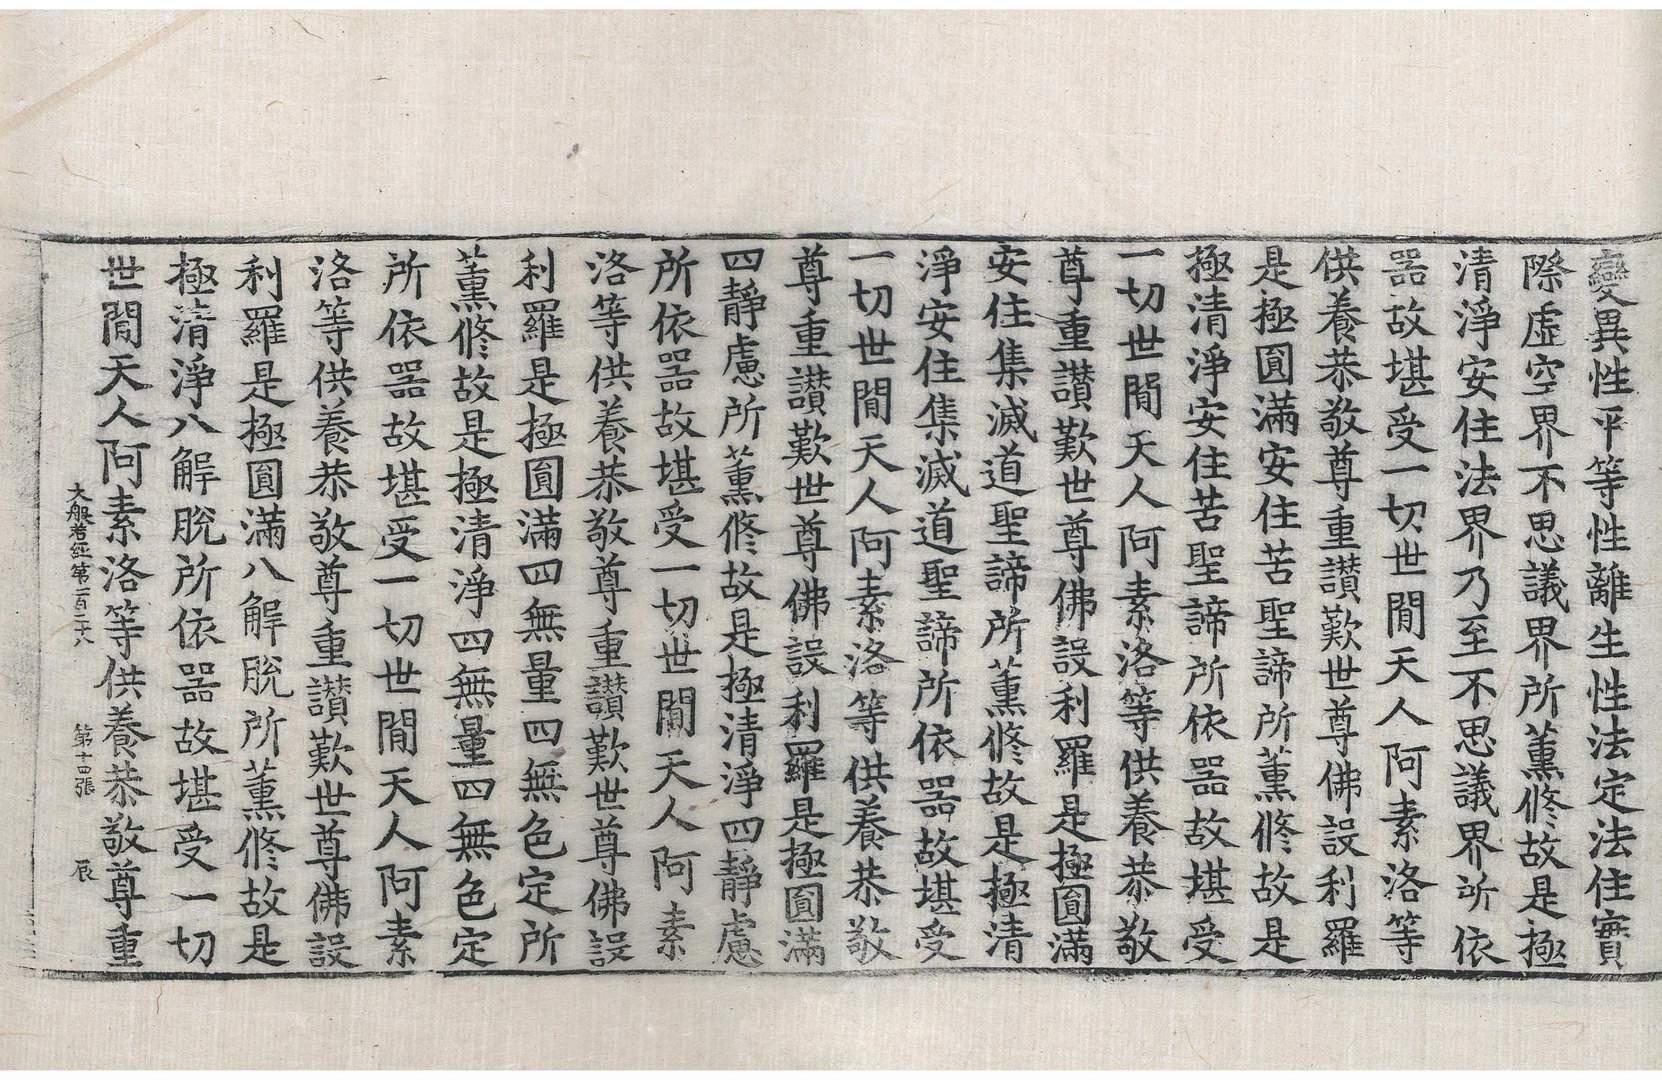 變異性平等性離生性法定法住實
際虛空界不思議界所薰修故是極
清淨安住法界乃至不思議界所依
器故堪受一切世閒天人阿素洛等
供養恭敬尊重讚歎世尊佛設利羅
是極圓滿安住苦聖諦所薰修故是
極清淨安住苦聖諦所依器故堪受
一切世閒天人阿素洛等供養恭敬
尊重讚歎世尊佛設利羅是極圓滿
安住集滅道聖諦所薰修故是極清
淨安住集滅道聖諦所依器故堪受
一切世閒天人阿素洛等供養恭敬
尊重讚歎世尊佛設利羅是極圓滿
四靜慮所薰修故是極清淨四靜慮
所依器故堪受一切世閒天人阿素
洛等供養恭敬尊重讚歎世尊佛設
利羅是極圓滿四無量四無色定所
薰修故是極清淨四無量四無色定
所依器故堪受一切世閒天人阿素
洛等供養恭敬尊重讚歎世尊佛設
利羅是極圓滿八解脫所薰修故是
極清淨八解脫所依器故堪受一切
世閒天人阿素洛等供養恭敬尊重
大般若經第一百二十八 第十四張 辰